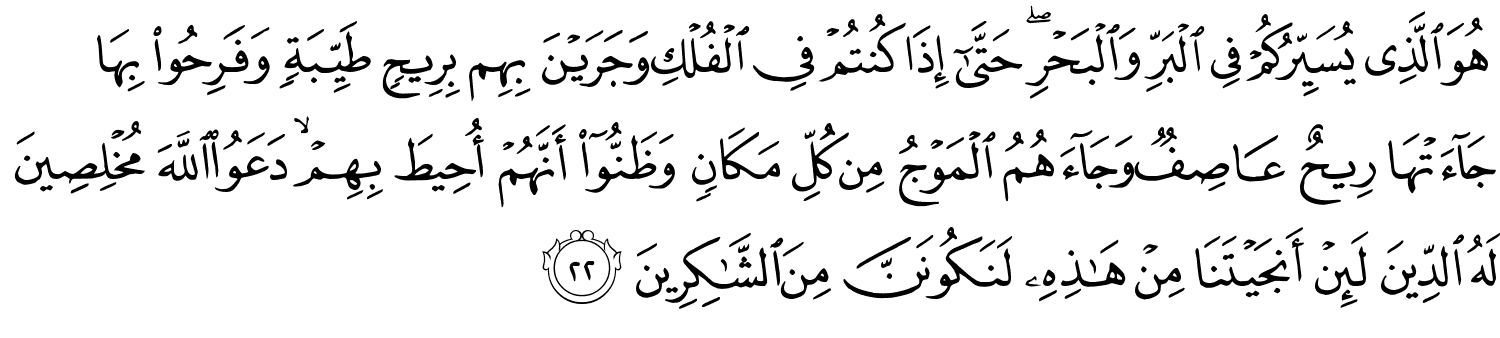 هُوَ ٱلَّذِى يُسَيِّرُكُمْ فِى ٱلْبَرِّ وَٱلْبَحْرِ ۖ حَتَّىٰٓ إِذَا كُنتُمْ فِى ٱلْفُلْكِ وَجَرَيْنَ بِهِم بِرِيحٍ طَيِّبَةٍ وَفَرِحُوا۟ بِهَا
جَآءَتْهَا رِيحٌ عَاصِفٌ وَجَآءَهُمُ ٱلْمَوْجُ مِن كُلِّ مَكَانٍ وَظَنُّوٓا۟ أَنَّهُمْ أُحِيطَ بِهِمْ ۙ دَعَوُا۟ ٱللَّهَ مُخْلِصِينَ
لَهُ ٱلدِّينَ لَئِنْ أَنجَيْتَنَا مِنْ هَـٰذِهِۦ لَنَكُونَنَّ مِنَ ٱلشَّـٰكِرِينَ ٢٢